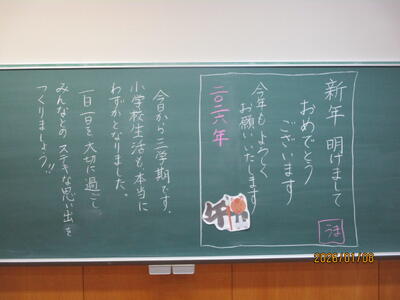 新年 明けまして
おめでとう
ございます
今年もよろしく
お願いいたします
二〇二六年
うま
今日から三学期です。
小学校生活も本当に
わずかとなりました。
一日一日を大切に過ごし
みんなとのステキな思い出を
つくりましょう!!
2026/01/08